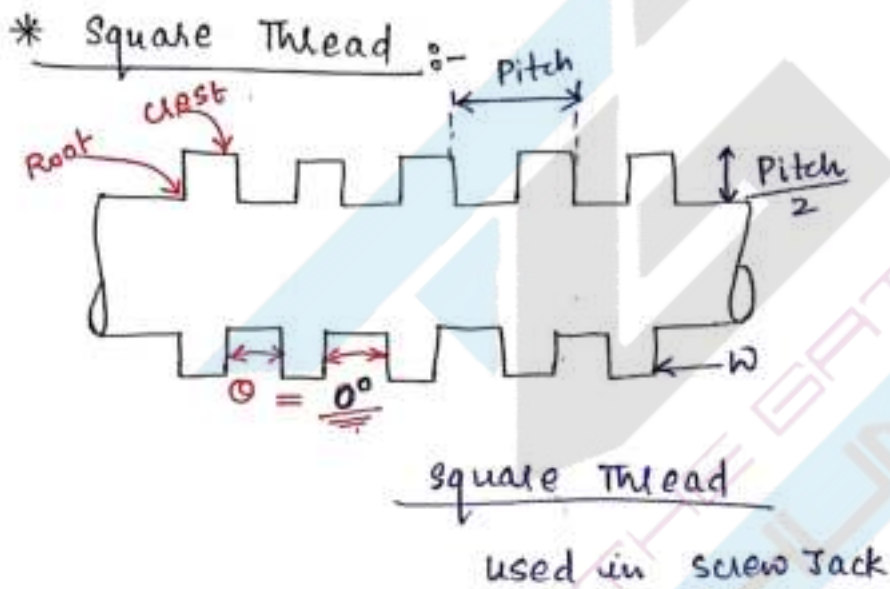 * Square Thread :-
Pitch
crest
Root
Pitch/2
W
θ = 0°
Square Thread
used in screw Jack
THE GATE